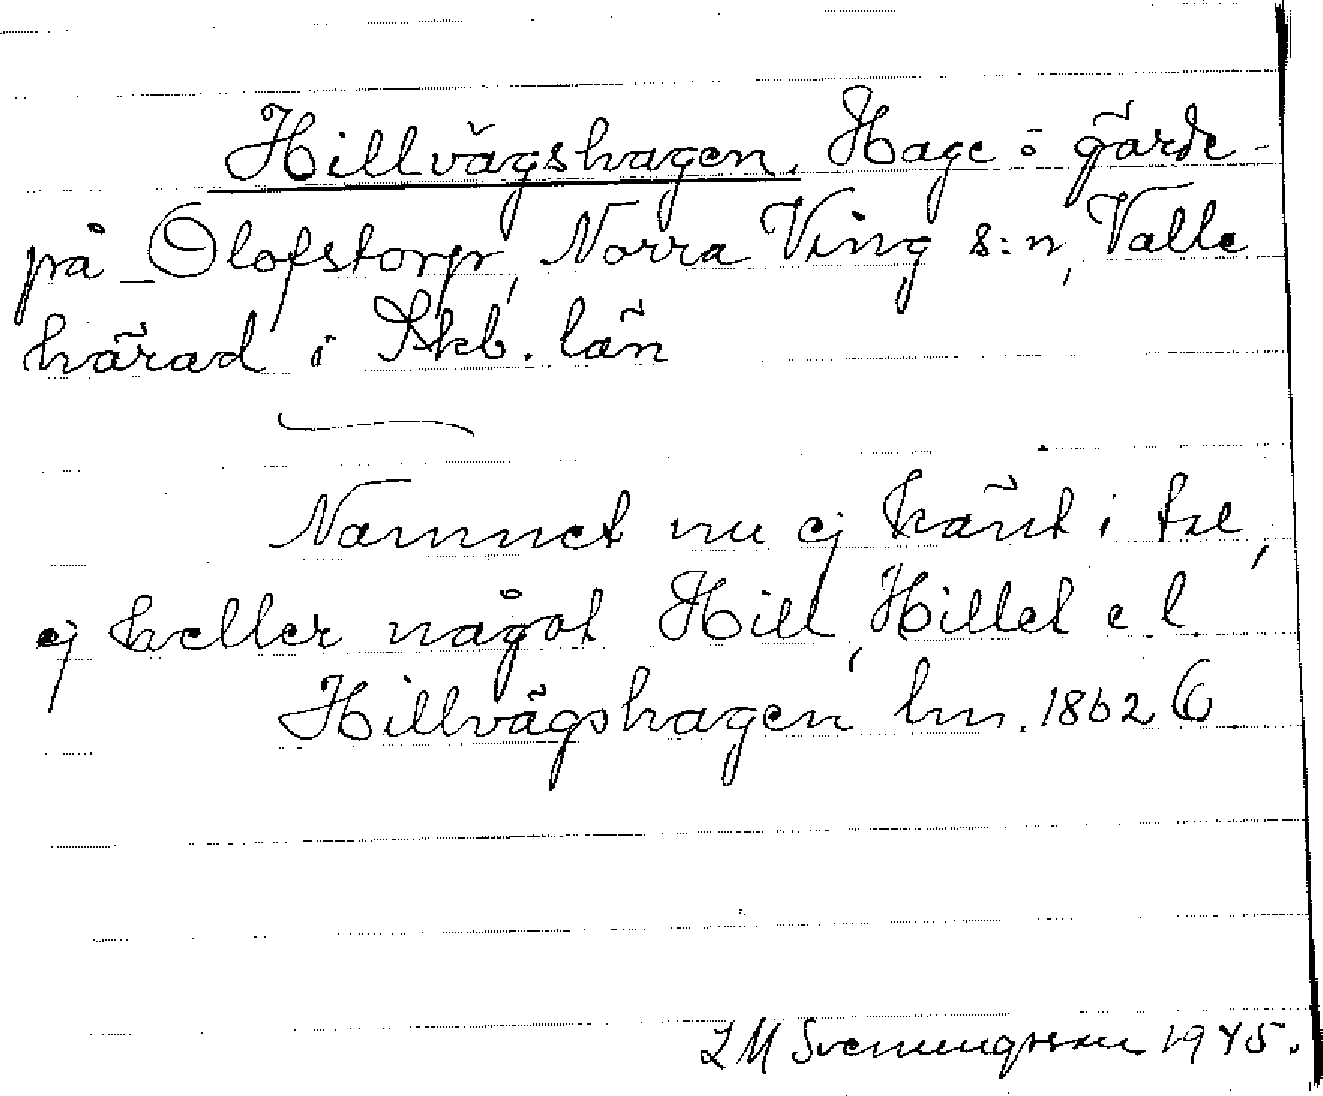 Hillvägshagen. Hage o gärde
på Olofstorp, Norra Ving s:n, Valle
härad i Skb. län
Namnet nu ej känt i tel,
ej heller något Hill, Hillet e l.
Hillvägshagen lm. 1862 6
L M Svenungsson 1945.